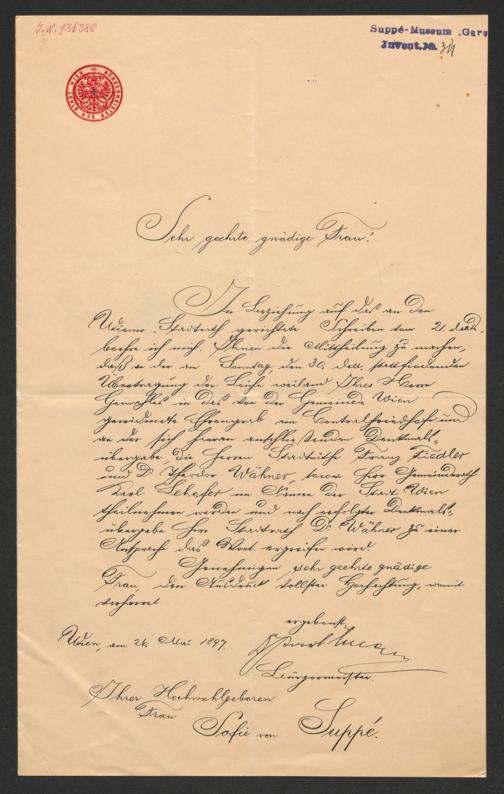 J.N. 136380
Suppé-Museum Gars
Invent. No. 34
BÜRGERMEISTER DER STADT WIEN
Sehr geehrte gnädige Frau!
In Beziehung auf das an den
Wiener Stadtrath gerichtete Schreiben vom 21. dM.
beehre ich mich, Ihnen die Mittheilung zu machen,
daß an der am Sonntag, den 30. dM. stattfindenden
Übertragung der Leiche weiland Ihres Herrn
Gemahles in das von der Gemeinde Wien
gewidmete Ehrengrab am Centralfriedhofe und
an der sich hieran anschließenden Denkmals-
übergabe die Herren Stadträthe Franz Fiedler
und Dr. Theodor Wähner, sowie Herr Gemeinderath
Karl Lehofer im Namen der Stadt Wien
theilnehmen werden und nach erfolgter Denkmals-
übergabe Herr Stadtrath Dr. Wähner zu einer
Ansprache das Wort ergreifen wird.
Genehmigen sehr geehrte gnädige
Frau den Ausdruck vollster Hochachtung, womit
verharret
ergebenst
Wien, am 26. Mai 1897.
Bürgermeister.
Ihrer Hochwohlgeboren
Frau
Sofie von Suppé.